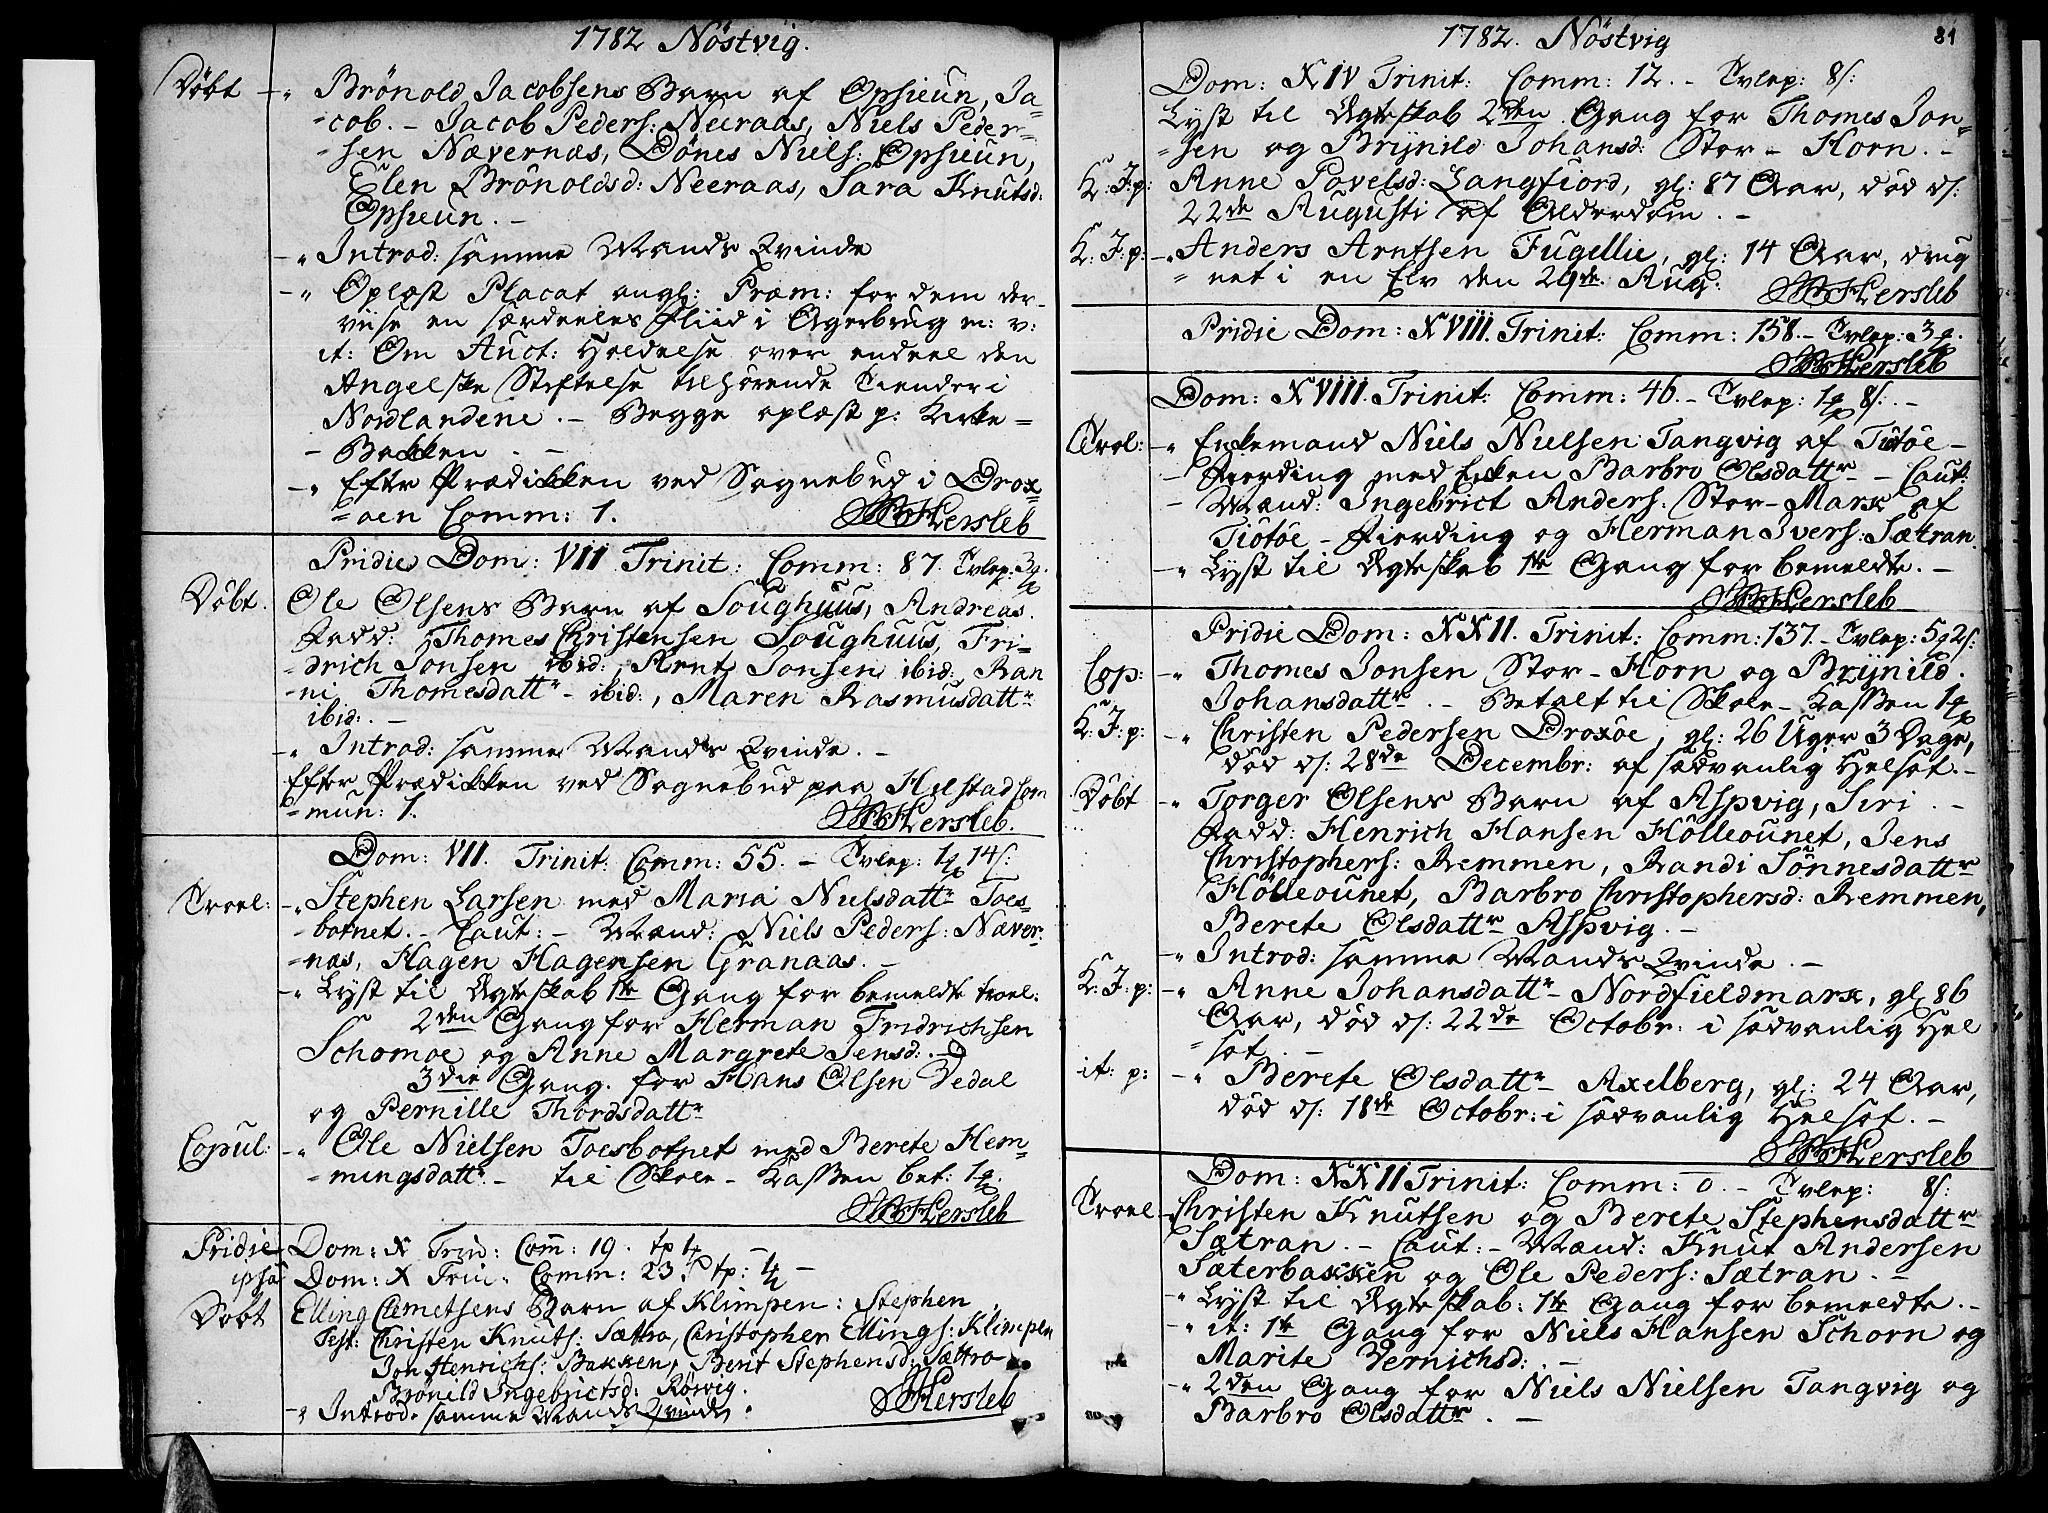 1782 Nöstvig.
Döbt -" Brönold Jacobsens Barn af Opsieun, Ja=
=cob. - Jacob Peders: Neeraas, Niels Peder=
=sen Nævernæs, Dönes Niels: Opsieun,
Elen Brönoldsd: Neeraas, Sara Knutsd:
Opsieun. -
-" Introd: samme Mands Qvinde
-" Oplæst Placat angl: Præm: for dem der
viise en særdeeles Fliid i Agerbrug m: v:
it: Om Auct: Holdelse over endeel den
Angelske Stiftelse tilhørende Tiender i
Nordlandene. - Begge oplæst p: Kirke=
- Bakken. -
-" Efter Prædikken ved Sognebud i Drox=
=öen Comm: 1. Hersleb
Pridie Dom: VII Trinit: Comm: 87. Tvlep: 3
Döbt. Ole Olsens Barn af Soughuus, Andreas.
Fadd: Thomes Christensen Soughuus, Fri=
=drich Jonsen ibid:, Arnt Jonsen ibid:, Ran
=ni Thomesdattr - ibid:, Maren Rasmusdattr
ibid:. -
-" Introd: samme Mands Qvinde. -
Efter Prædikken ved Sognebud paa Helstad Com
=mun: 1. Hersleb.
Dom: VII. Trinit: Comm: 55. - Tvlep: 1 14s:
Troel: -" Stephen Larsen med Maria Nielsdattr Toes=
=botnet. - Caut: - Mænd: Niels Peders: Næver=
=næs, Hagen Hagensen Granaas. -
-" Lyst til Ægteskab 1te Gang for bemeldte troel:
2den Gang for Herman Fridrichsen
Schomoe og Anne Margrete Jensd:. -
3die Gang. for Hans Olsen Vedal
og Pernille Thordsdattr
Copul: -" Ole Nielsen Toesbotnet med Berete Hem=
=mingsdattr. - til Skole - Kassen bet: 1
Hersleb
Pridie Dom: X Trin: Com̅: 19. tp
ipsa Dom: X Trin: Comm: 23. tp: -
Dobt Elling Clemetsens Barn af Klimpen: Stephen
Test: Christen Knuts: Sættra, Christopher Ellings: Klimpen
Jon Henrichs: Bakken, Berit Stephensd: Sættra
Brönild Ingebrictsd: Rörvig.
-" Introd: samme Mands Qvinde.
Hersleb
1782. Nöstvig 81
Dom: XIV Trinit: Comm: 12. - Tvlep: 8s:
Lyst til Ægteskab 2den Gang for Thomes Jon=
=sen og Brÿnild Johansd: Stor - Horn. -
K: J: p: Anne Povelsd: Langfiord, gl: 87 Aar, död ds:
22de Augusti af Alderdom. -
K: J: p: -" Anders Arntsen Fugellie, gl: 14 Aar, drug
=net i en Elv den 29de Aug. Hersleb
Pridie Dom: XVIII. Trinit: Comm: 158. - Tvlep: 3
Hersleb
Dom: XVIII. Trinit: Comm: 46. - Tvlep: 1 8s. -
Trol: -" Enkemand Niels Nielsen Tangvig af Tiötöe -
- Fierding med Enken Barbro Olsdattr - Caut:
- Mænd: Ingebrict Anders: Stor - Mark af
Tiötöe - Fierding og Herman Ivers: Sætran.
-" Lyst til Ægteskab 1te Gang for bemeldte. -
Hersleb
Pridie Dom: XXII. Trinit: Comm: 137. - Tvlep: 5 2s:
Cop: -" Thomes Jonsen Stor - Horn og Brÿnild
Johansdattr. - Betalt til Skole - Kassen 1
K: J: p: -" Christen Pedersen Droxöe, gl: 26 Uger 3 Dage,
död ds: 28de Decembr: af sædvanlig Helsot. -
Döbt -" Torger Olsens Barn af Aspvig, Siri. -
Fadd: Henrich Hansen Hölleounet, Jens
Christophers: Remmen, Randi Sönnesdattr
Hölleounet, Barbro Christophersd: Remmen,
Berete Olsdattr Aspvig. -
-" Introd: samme Mands Qvinde. -
K: J: p: -" Anne Johansdattr - Nordfieldmark, gl: 86
Aar, död ds: 22de Octobr: i sædvanlig Hel
=sot. -
it: p: -" Berete Olsdattr - Axelberg, gl: 24 Aar,
död ds: 18de Octobr: i sædvanlig Helsot. -
Hersleb
Dom: XXII Trinit: Comm: 0. - Tvlep: 8s:
Troel -" Christen Knutsen og Berete Stephensdattr
Sætran. - Caut: - Mænd: Knut Andersen
Sæterbakken og Ole Peders: Sætran. -
-" Lyst til Ægteskab: 1te Gang for bemeldte. -
-" it: 1te Gang for Niels Hansen Schorn og
Marite Vernichsd:. -
-" 2den Gang for Niels Nielsen Tangvig og
Barbro Olsdattr. -